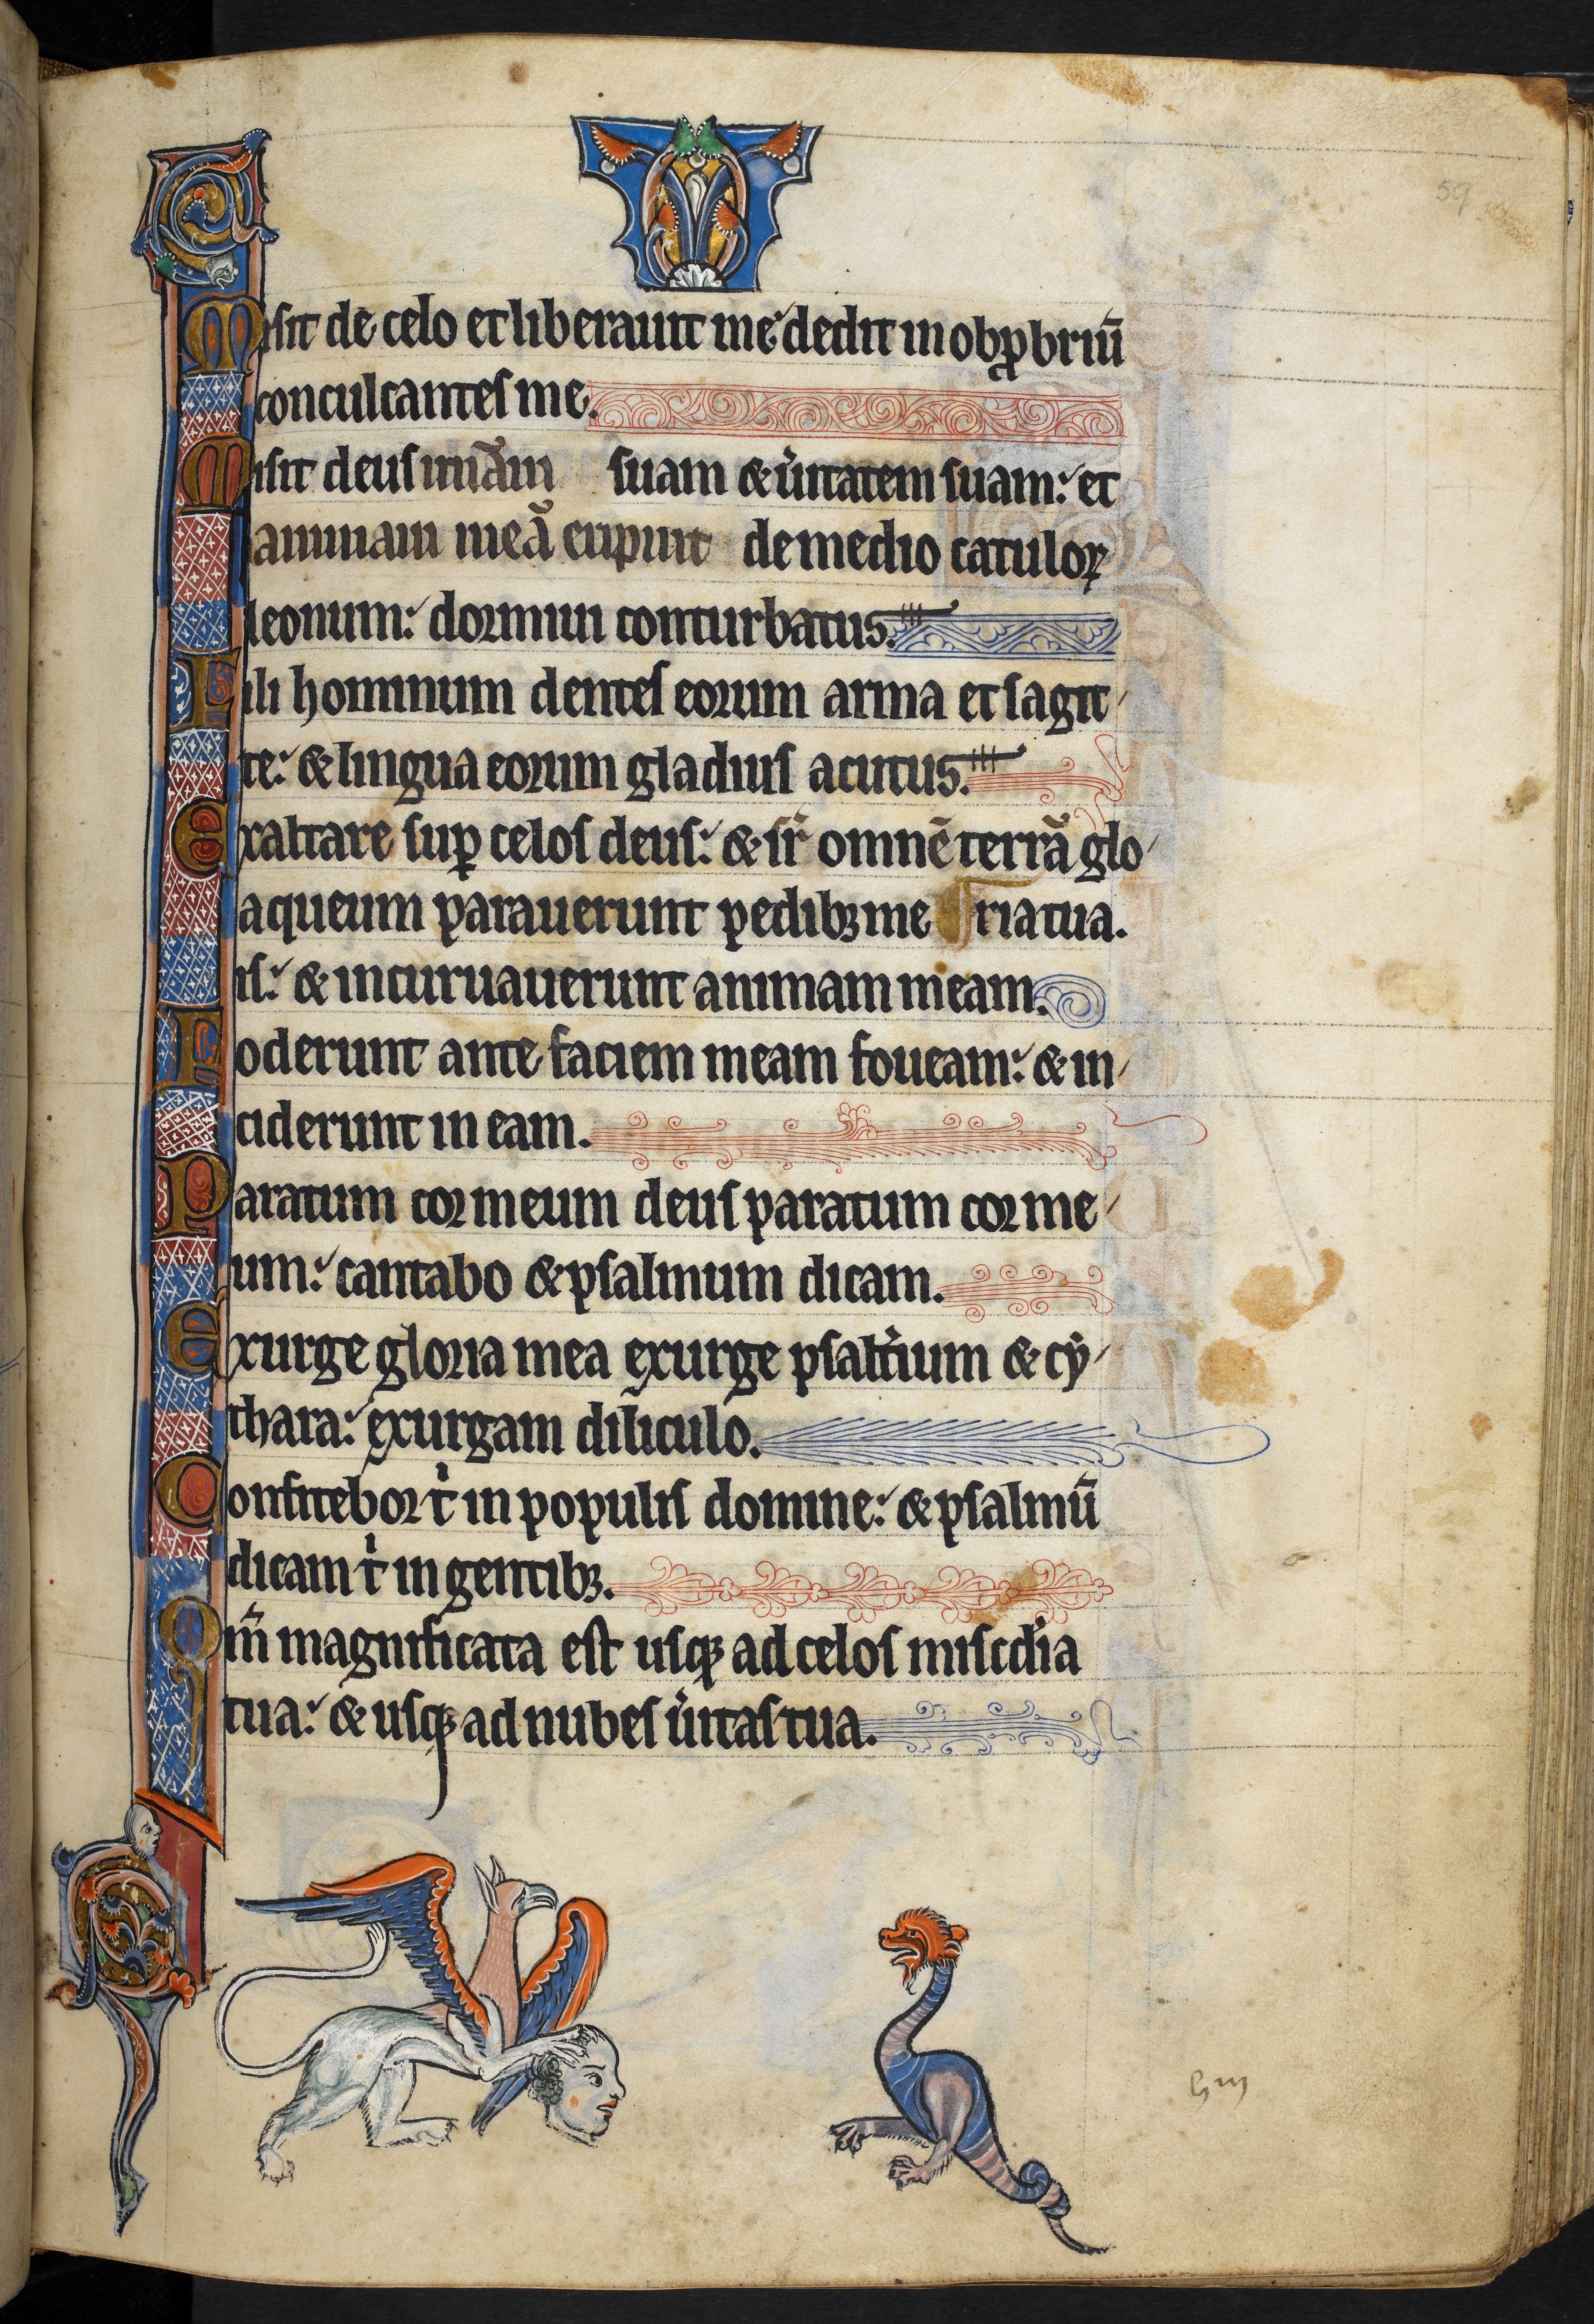 59
Misit de celo et liberauit me dedit in obꝓbriū
conculcantes me.
Misit deus mīam suam & ůitatem suam: et
animam meā eripuit de medio catuloꝝ
leonum: dormiui conturbatus.
Filii hominum dentes eorum arma et sagit
te: & lingua eorum gladius acutus.
Exaltare suꝑ celos deus: & sr̄ omnē terrā glo
aqueum parauerunt pedibꝫ me ria tua.
is: & incuruauerunt animam meam.
Foderunt ante faciem meam foueam: & in
ciderunt in eam.
Paratum cor meum deus paratum cor me
um: cantabo & psalmum dicam.
Exurge gloria mea exurge psaltͥium & cy
thara: exurgam diliculo.
Confitebor tͥ in populis domine: & psalmū
dicam tͥ in gentibꝫ.
Qm̄ magnificata est usqꝫ ad celos miscdia
tua: & usqꝫ ad nubes uͥitas tua.